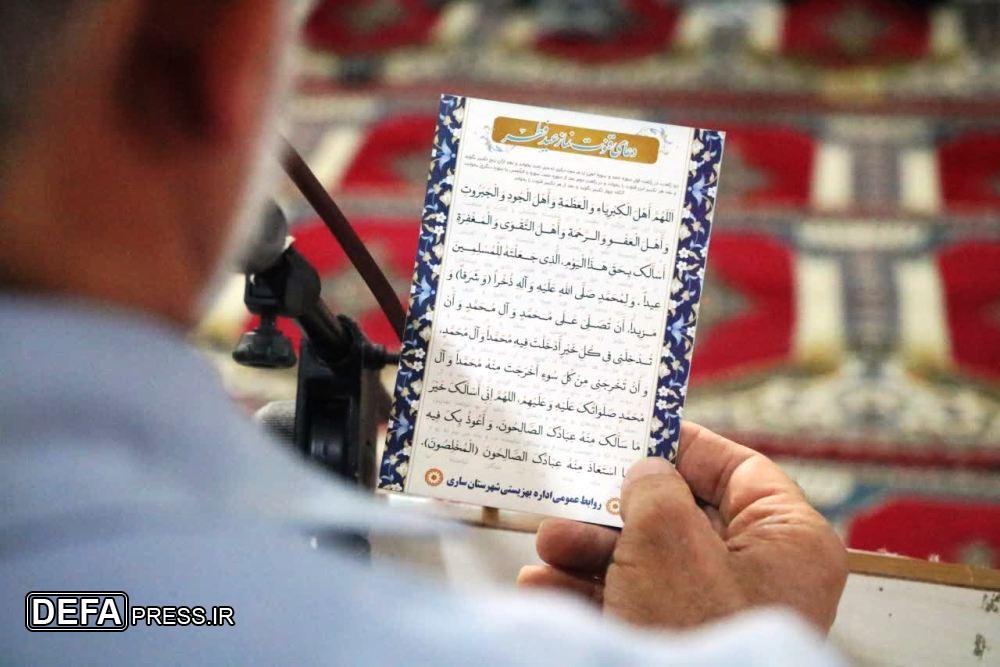 دعای قنوت نماز عید فطر
اللهُمَّ اَهْلَ الْکِبْرِیاءِ وَالْعَظَمَةِ وَ اَهْلَ الْجُودِ وَالْجَبَرُوتِ
وَ اَهْلَ الْعَفْوِ وَالرَّحْمَةِ وَ اَهْلَ التَّقْوَی وَالْمَغْفِرَةِ
اَسْاَلُکَ بِحَقِّ هَذَا الْیَوْمِ، الَّذِی جَعَلْتَهُ لِلْمُسْلِمِینَ
عِیداً، وَ لِمُحَمَّدٍ صَلَّی اللهُ عَلَیْهِ وَ آلِهِ ذُخْراً (وَ شَرَفاً) وَ
مَزِیداً، اَنْ تُصَلِّیَ عَلَی مُحَمَّدٍ وَ آلِ مُحَمَّدٍ وَ اَنْ
تُدْخِلَنِی فِی کُلِّ خَیْرٍ اَدْخَلْتَ فِیهِ مُحَمَّداً وَ آلَ مُحَمَّدٍ،
وَ اَنْ تُخْرِجَنِی مِنْ کُلِّ سُوءٍ اَخْرَجْتَ مِنْهُ مُحَمَّداً وَ آلَ
مُحَمَّدٍ صَلَوَاتُکَ عَلَیْهِ وَ عَلَیْهِمْ، اللهُمَّ اِنِّی اَسْاَلُکَ خَیْرَ
مَا سَاَلَکَ مِنْهُ عِبَادُکَ الصَّالِحُونَ، وَ اَعُوذُ بِکَ فِیهِ
مَا اسْتَعَاذَ مِنْهُ عِبَادُکَ الصَّالِحُونَ (الْمُخْلِصُونَ).
روابط عمومی اداره بهزیستی شهرستان ساری
DEFAPRESS.IR